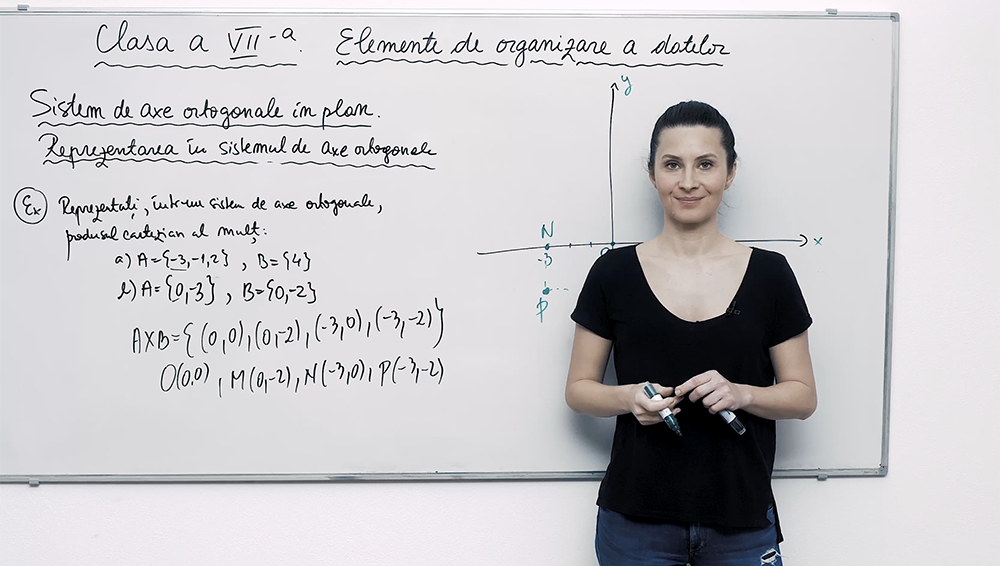 Clasa a VII-a. Elemente de organizare a datelor
Sistem de axe ortogonale în plan.
Reprezentarea în sistemul de axe ortogonale
Ex Reprezentați, într-un sistem de axe ortogonale,
produsul cartezian al mulț:
a) A={-3,-1,2} , B={4}
b) A={0,-3} , B={0,-2}
AXB={(0,0),(0,-2),(-3,0),(-3,-2)}
O(0,0) , M(0,-2), N(-3,0), P(-3,-2)
y
N
x
-3
P